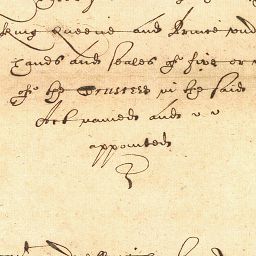 King Queene and Prince und
hands and seales of five or
of the Trustees in the said
Act named and
appointed